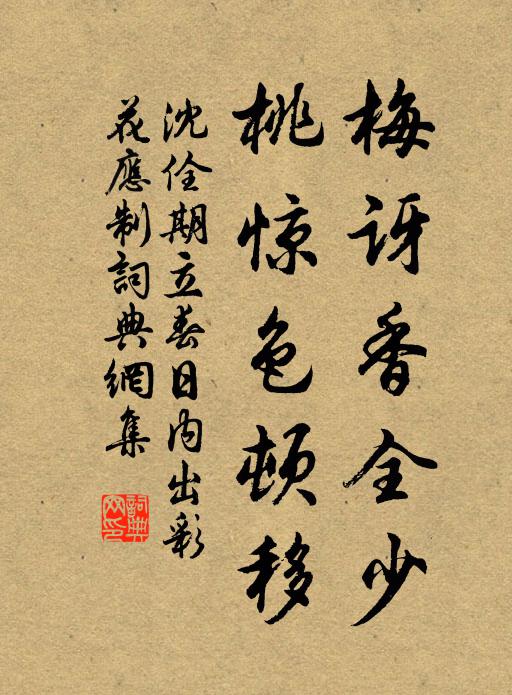 梅讶香全少
桃惊色顿移
沈佺期立春日内出彩
花應制詞典網集
詞典網印